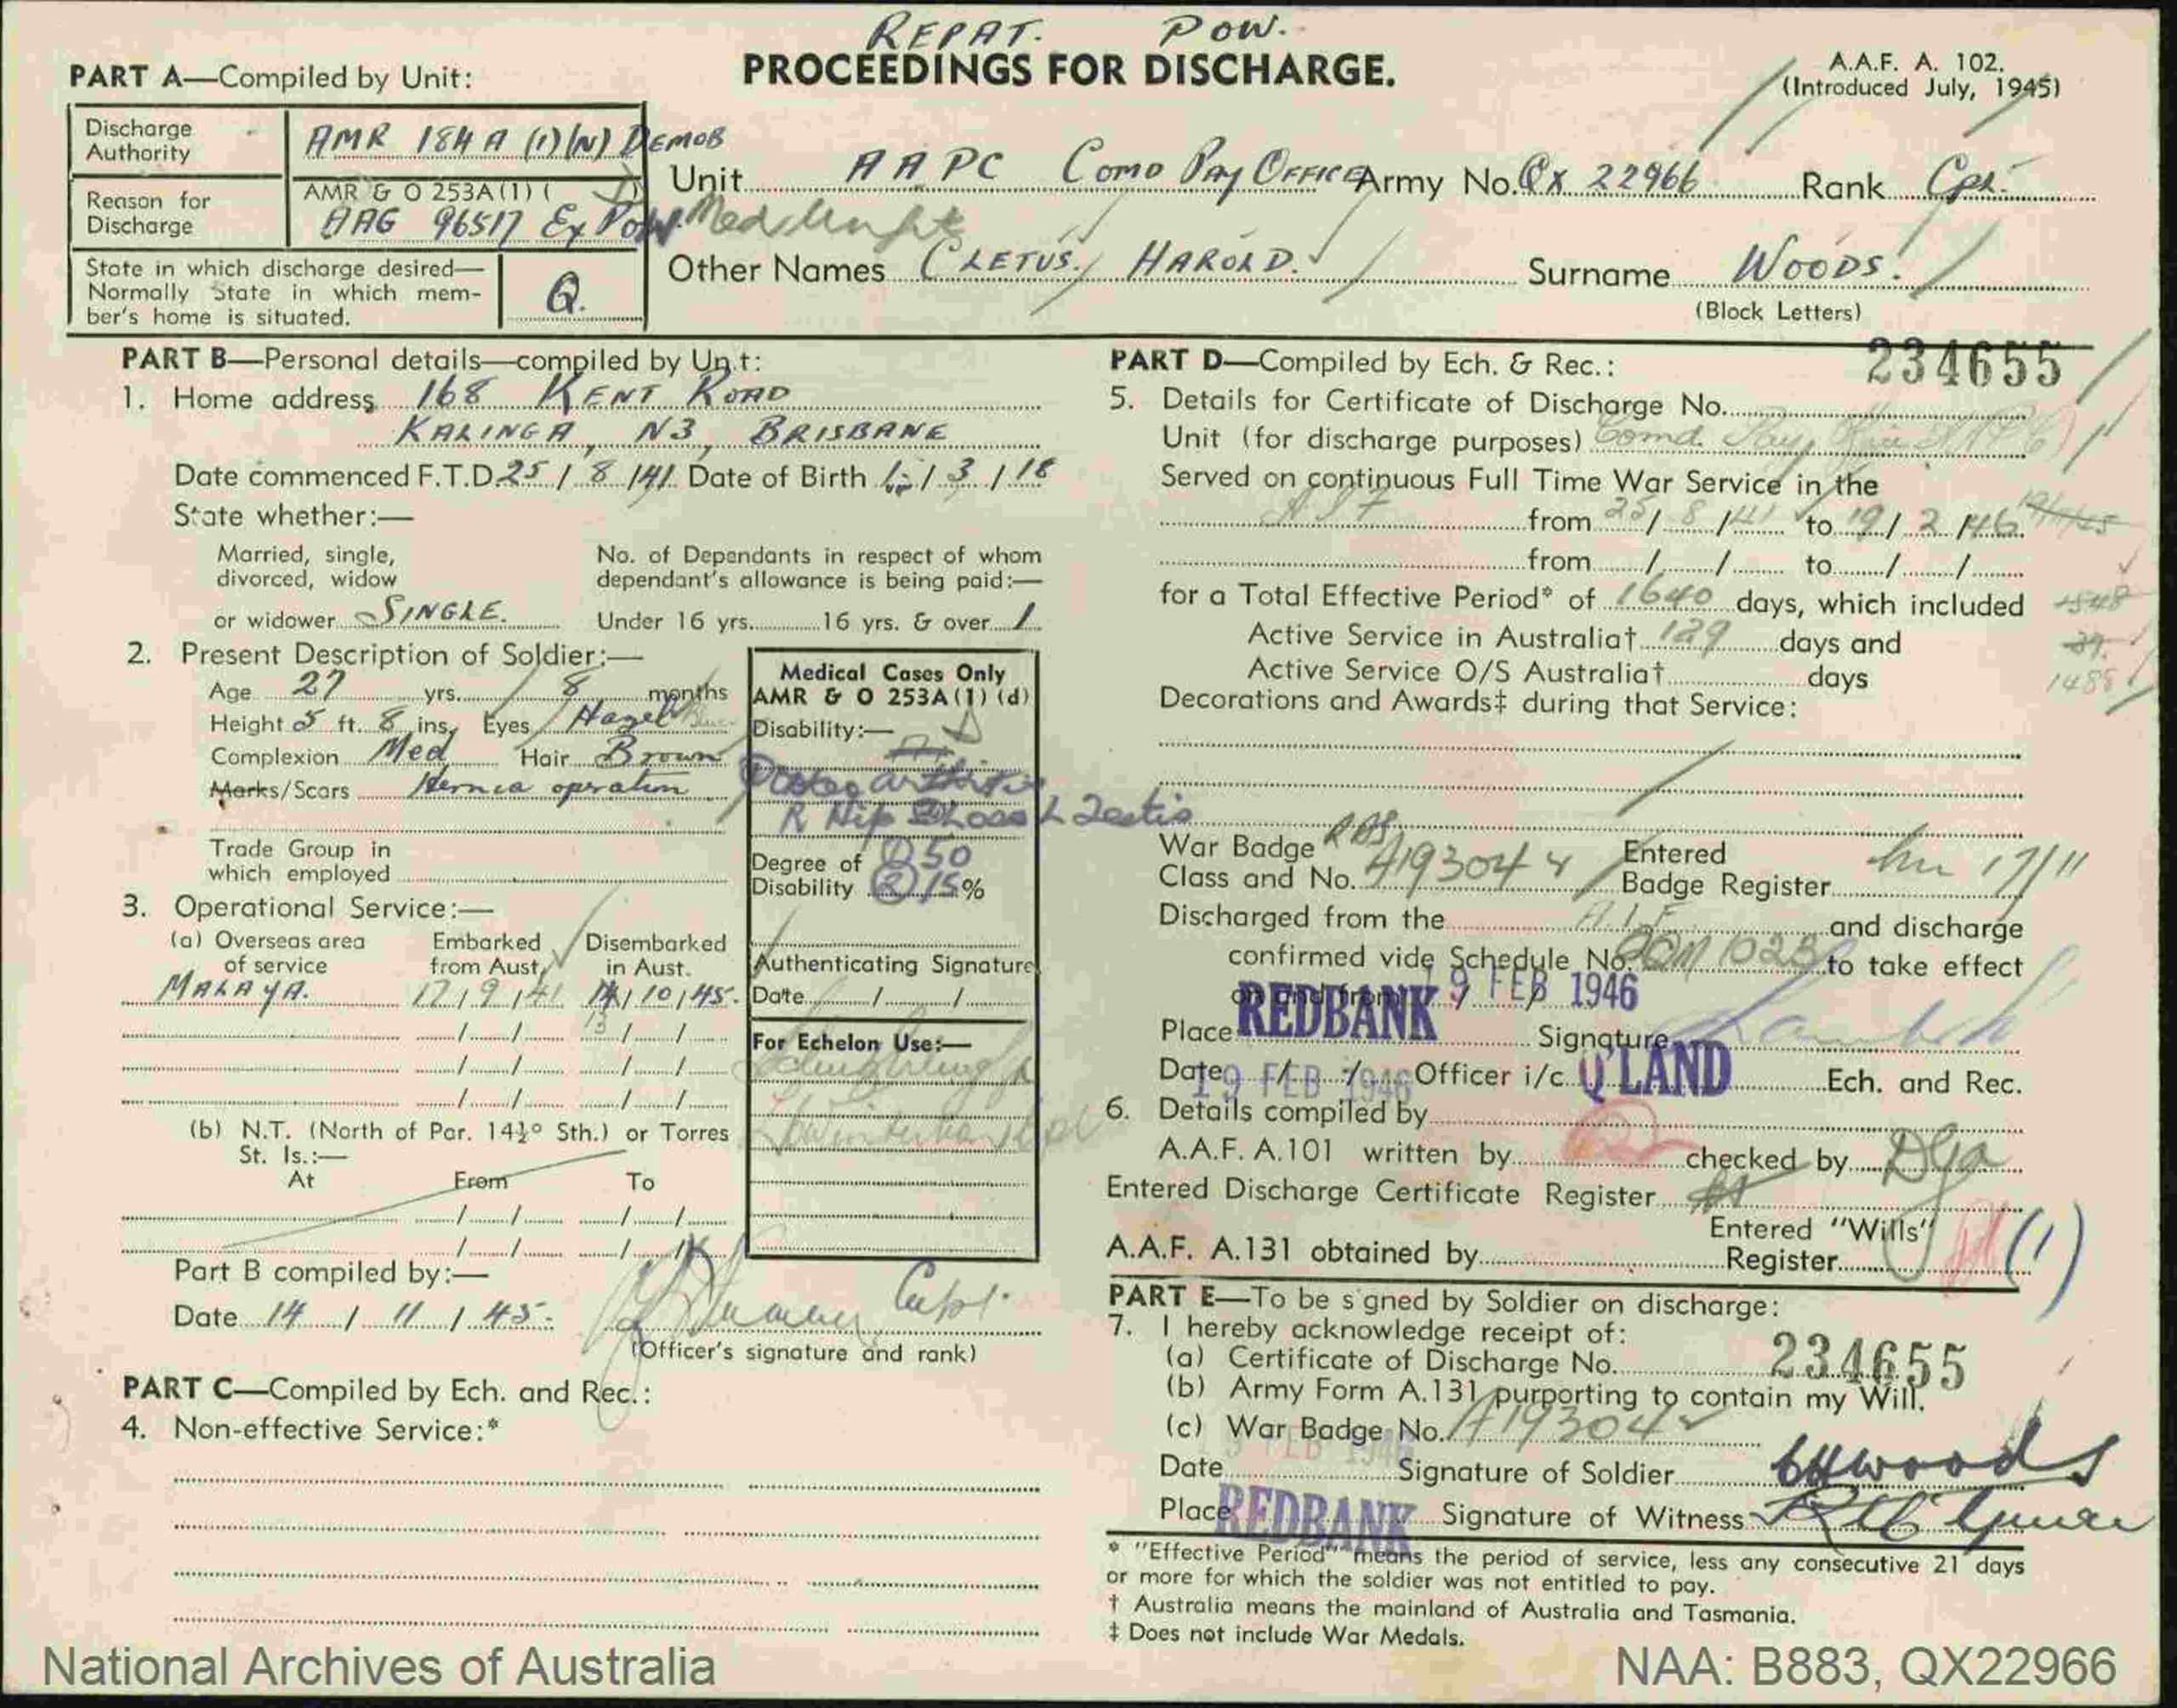 REPAT. POW.
PROCEEDINGS FOR DISCHARGE.
A.A.F. A. 102.
(Introduced July, 1945)
PART A—Compiled by Unit:
Discharge Authority AMR 184 A (1)(N) DEMOB
Reason for Discharge AMR & O 253A(1) (
AAG 96517 Ex POW. Med Unfit
State in which discharge desired—
Normally State in which mem-
ber's home is situated. Q.
Unit AAPC COMO PAY OFFICE Army No. QX 22966 Rank Cpl.
Other Names CLETUS, HAROLD. Surname WOODS.
(Block Letters)
PART B—Personal details—compiled by Unit:
1. Home address 168 KENT ROAD
KALINGA, N3, BRISBANE
Date commenced F.T.D. 25/8/41 Date of Birth / 3 / 18
State whether:—
Married, single,
divorced, widow
or widower SINGLE.
No. of Dependants in respect of whom
dependant's allowance is being paid:—
Under 16 yrs. 16 yrs. & over 1
2. Present Description of Soldier:—
Age 27 yrs. 8 months
Height 5 ft. 8 ins. Eyes Hazel
Complexion Med Hair Brown
Marks/Scars Hernia operation
Trade Group in
which employed
Medical Cases Only
AMR & O 253A(1) (d)
Disability:—
Osteo arthritis
R Hip Loss L Testis
Degree of ① 50
Disability ② 15 %
Authenticating Signature
Date / /
For Echelon Use:—
3. Operational Service:—
(a) Overseas area
of service
Embarked
from Aust.
Disembarked
in Aust.
MALAYA. 17/9/41 14/10/45.
13
/ / / /
/ / / /
/ / / /
(b) N.T. (North of Par. 14½° Sth.) or Torres
St. Is.:—
At From To
/ / / /
/ / / /
Part B compiled by:—
Date 14 / 11 / 45. Capt.
(Officer's signature and rank)
PART C—Compiled by Ech. and Rec.:
4. Non-effective Service:*
PART D—Compiled by Ech. & Rec.:
5. Details for Certificate of Discharge No. 234655
Unit (for discharge purposes) Comd. Pay
Served on continuous Full Time War Service in the
AIF from 25/8/41 to 19/2/46
from / / to / /
for a Total Effective Period* of 1640 days, which included 1548
Active Service in Australia† 129 days and 89
Active Service O/S Australia† days 1488
Decorations and Awards‡ during that Service:
War Badge RAS
Class and No. A193044 Entered
Badge Register 17/11
Discharged from the A.I.F. and discharge
confirmed vide Schedule No. to take effect
on and from 19 FEB 1946
Place REDBANK Signature
Date 19 FEB 1946 Officer i/c Q'LAND Ech. and Rec.
6. Details compiled by
A.A.F. A.101 written by checked by
Entered Discharge Certificate Register
Entered "Wills"
A.A.F. A.131 obtained by Register (1)
PART E—To be signed by Soldier on discharge:
7. I hereby acknowledge receipt of:
(a) Certificate of Discharge No. 234655
(b) Army Form A.131 purporting to contain my Will.
(c) War Badge No. A193044
19 FEB 1946
Date Signature of Soldier CHWoods
Place REDBANK Signature of Witness
* "Effective Period" means the period of service, less any consecutive 21 days
or more for which the soldier was not entitled to pay.
† Australia means the mainland of Australia and Tasmania.
‡ Does not include War Medals.
National Archives of Australia
NAA: B883, QX22966